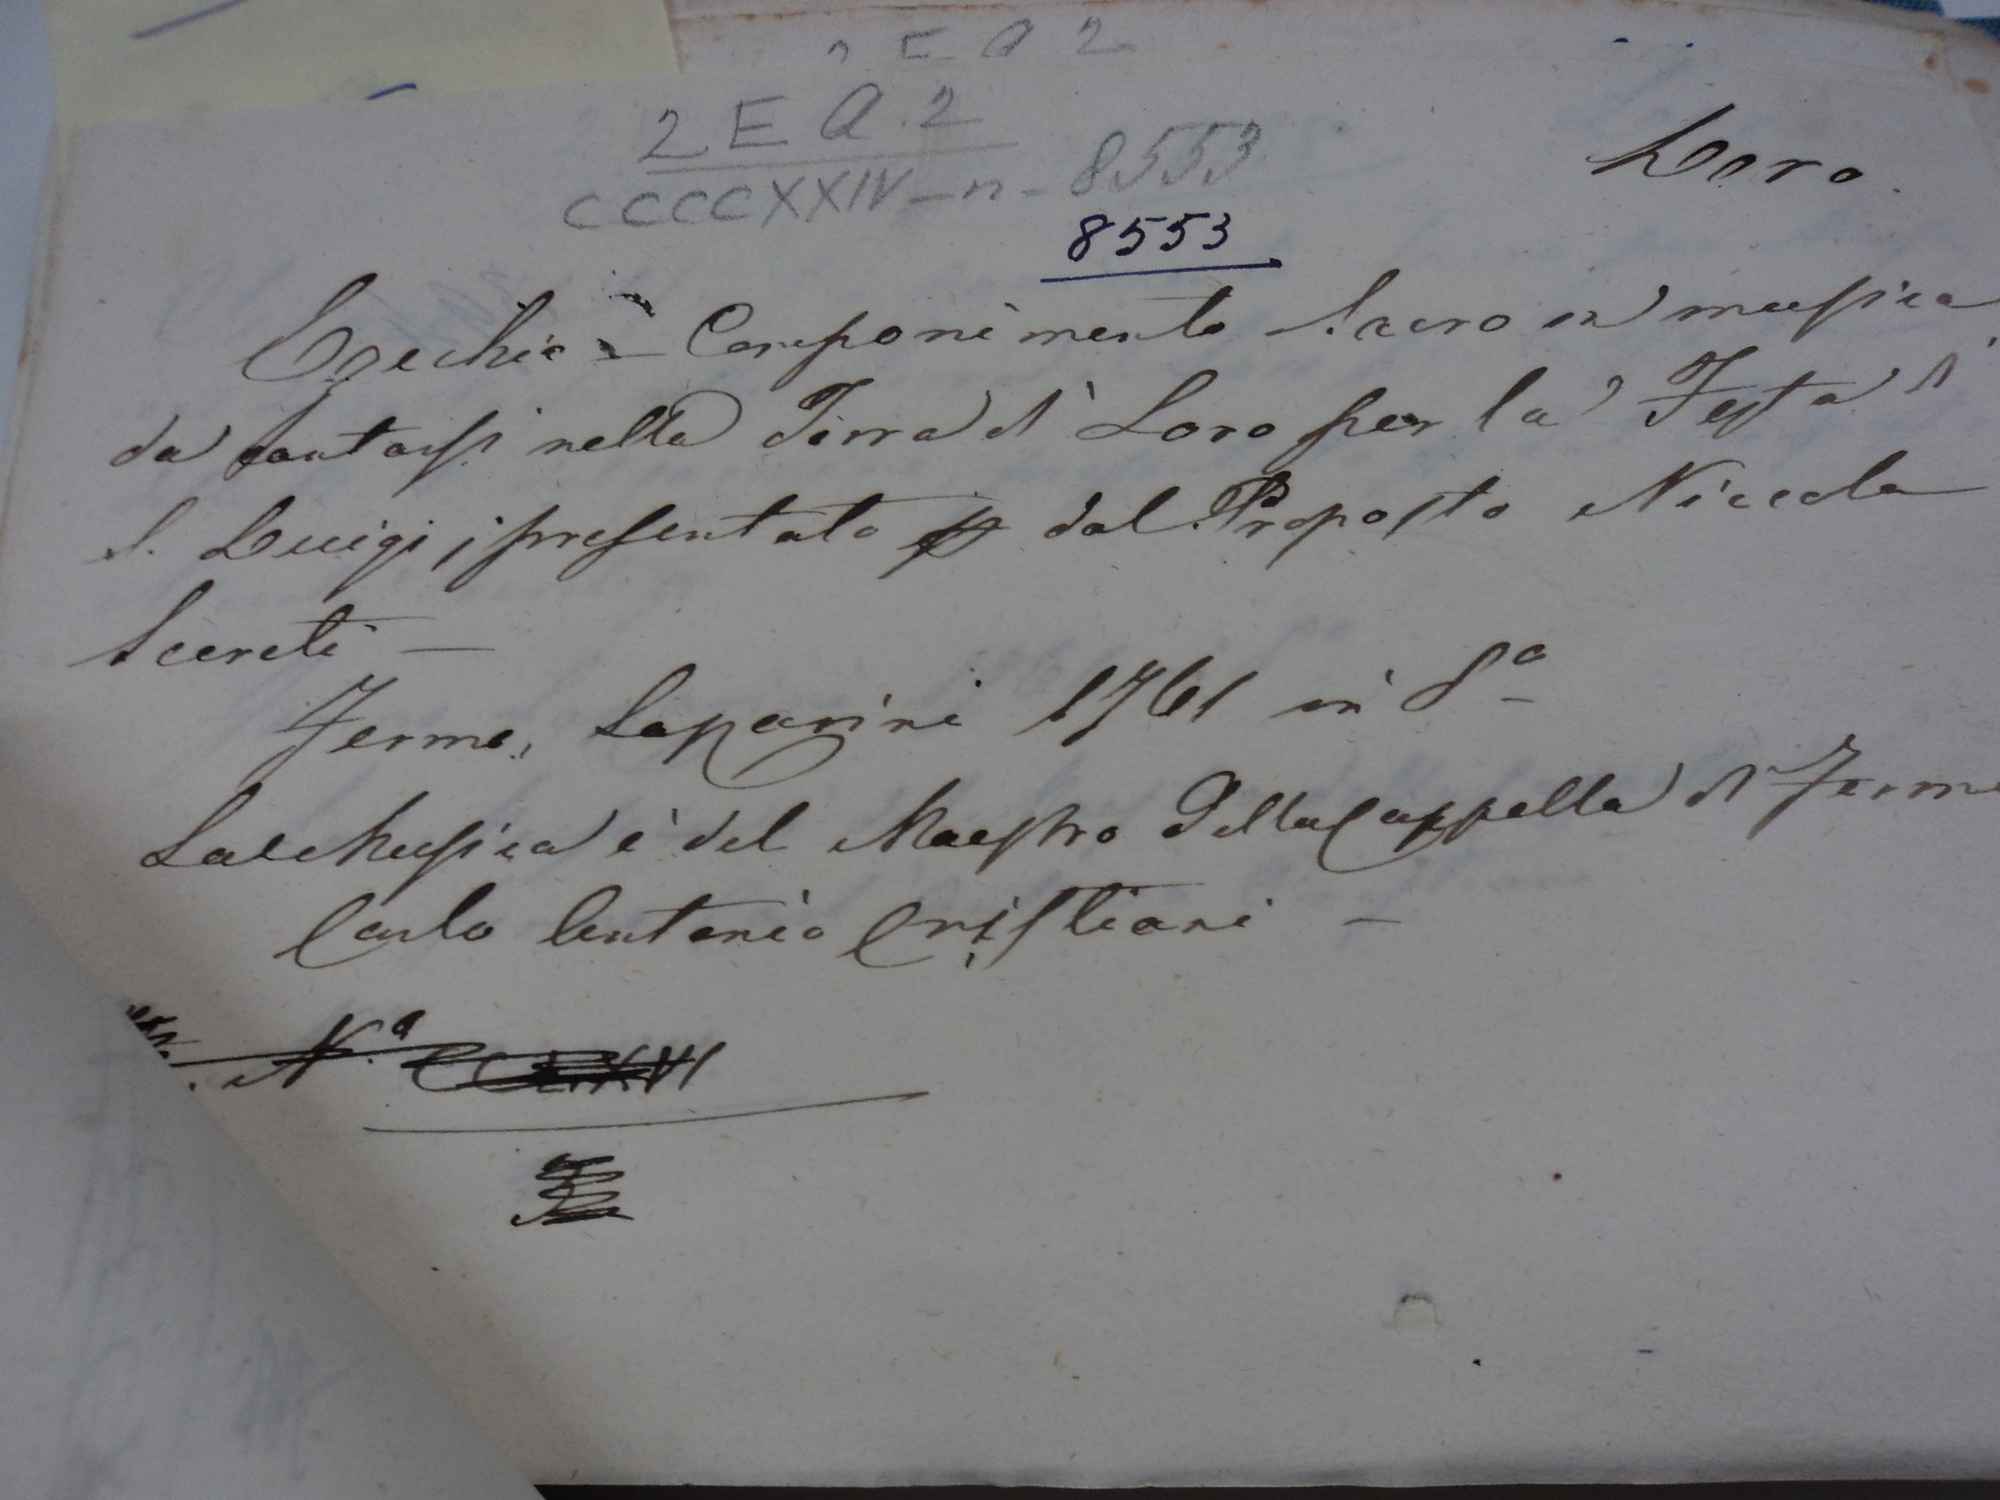 2 E Q 2
2 E Q. 2
CCCCXXIV - n - 8553
Loro.
8553
Ezechia - Componimento Sacro in musica
da Cantarsi nella Terra di Loro per la Festa di
S. Luigi, presentato dal Proposto Niccola
Fermo, 1761 in 8ª
La Musica è del Maestro della Cappella di Fermo
Carlo Antonio Cristiani -
N.ª